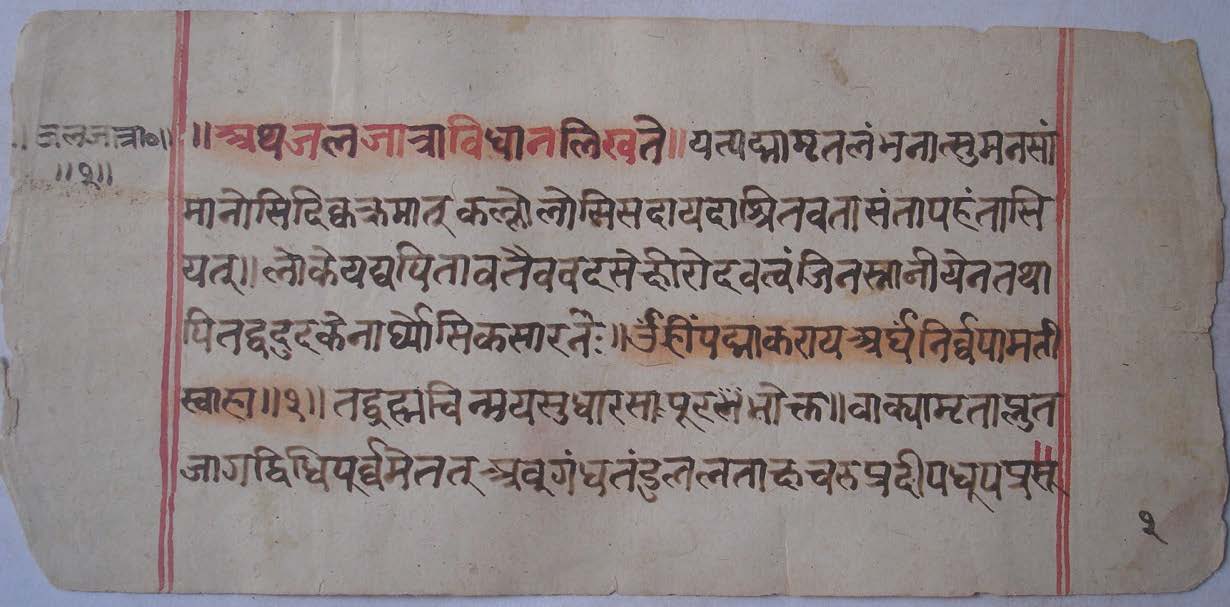 जलजात्रा०॥
॥१॥
॥अथजलजात्राविधानलिखते॥यत्पद्मामृतलंभनात्सुमनसां
मानोसिदिक्चक्रमातुकल्लोलोसिसदायदाश्रितवतासंतापहंतासि
यत्॥लोकेयद्यपितावतैववदसेक्षीरोदवत्वंजिनस्नानीयेनतथा
पितद्वदुदकेनार्घ्योसिकसारनैः॥ॐह्रींपद्माकरायअर्घंनिर्व्वपामती
स्वाहा॥१॥तद्ब्रह्मचिन्मयसुधारसपूरभोक्त॥वाक्यामृताप्लुत
जागद्विधिपूर्व्वमेतत्अवुगंधतंडुललताक्षचरुप्रदीपधूपप्रसू
१